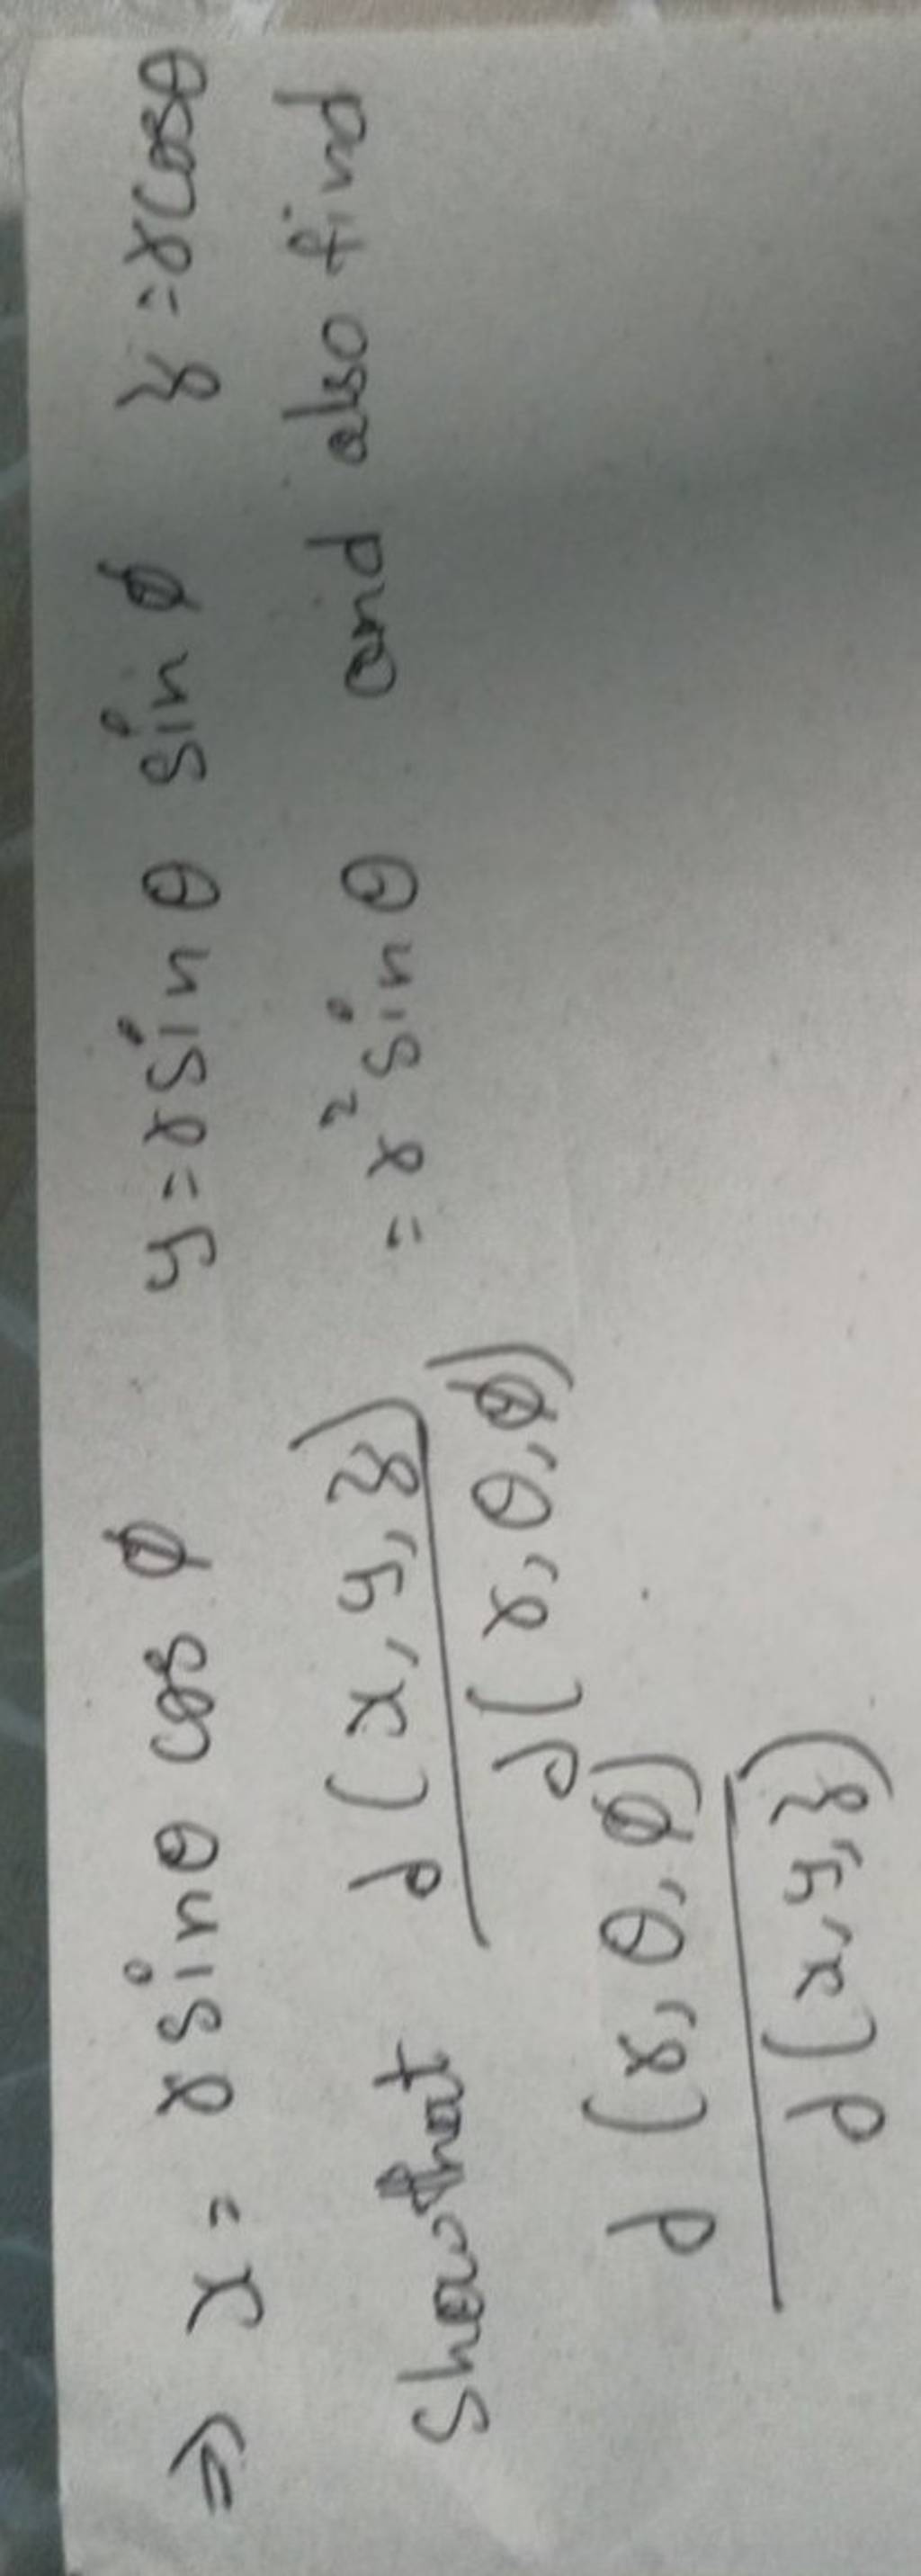 ⇒ x = r sinθ cos ϕ y = r sin θ sin ϕ z = r cosθ
Show that ∂(x, y, z)/∂(r, θ, ϕ) = r² sin θ and also find
∂(r, θ, ϕ)/∂(x, y, z)